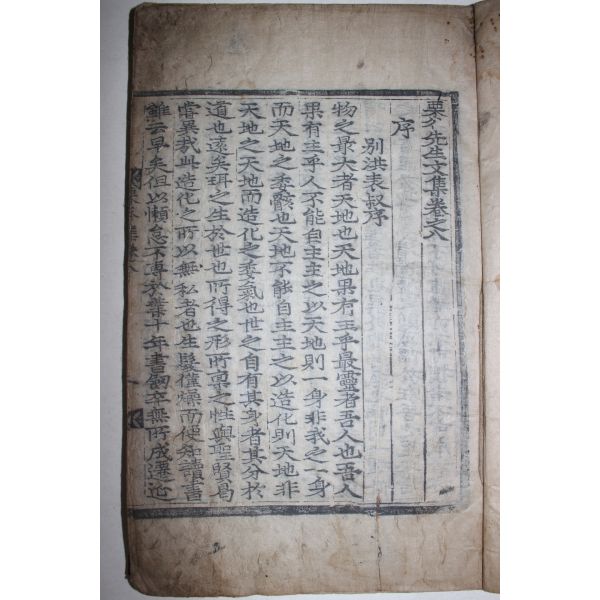 栗谷先生文集卷之八
序
別洪表叔序
物之最大者天地也天地果有主乎最靈者吾人也吾人
果有主乎人不能自主主之以天地則一身非我之一身
而天地之委骸也天地不能自主主之以造化則天地非
天地之天地而造化之委氣也世之自有其身者其分於
道也遠矣珥之生於世也所得之形所稟之性與聖賢曷
嘗異哉此造化之所以無私者也生髮僅燥而使知讀書
雖云早矣但以懶怠不專於業十年書劒卒無所成遷延